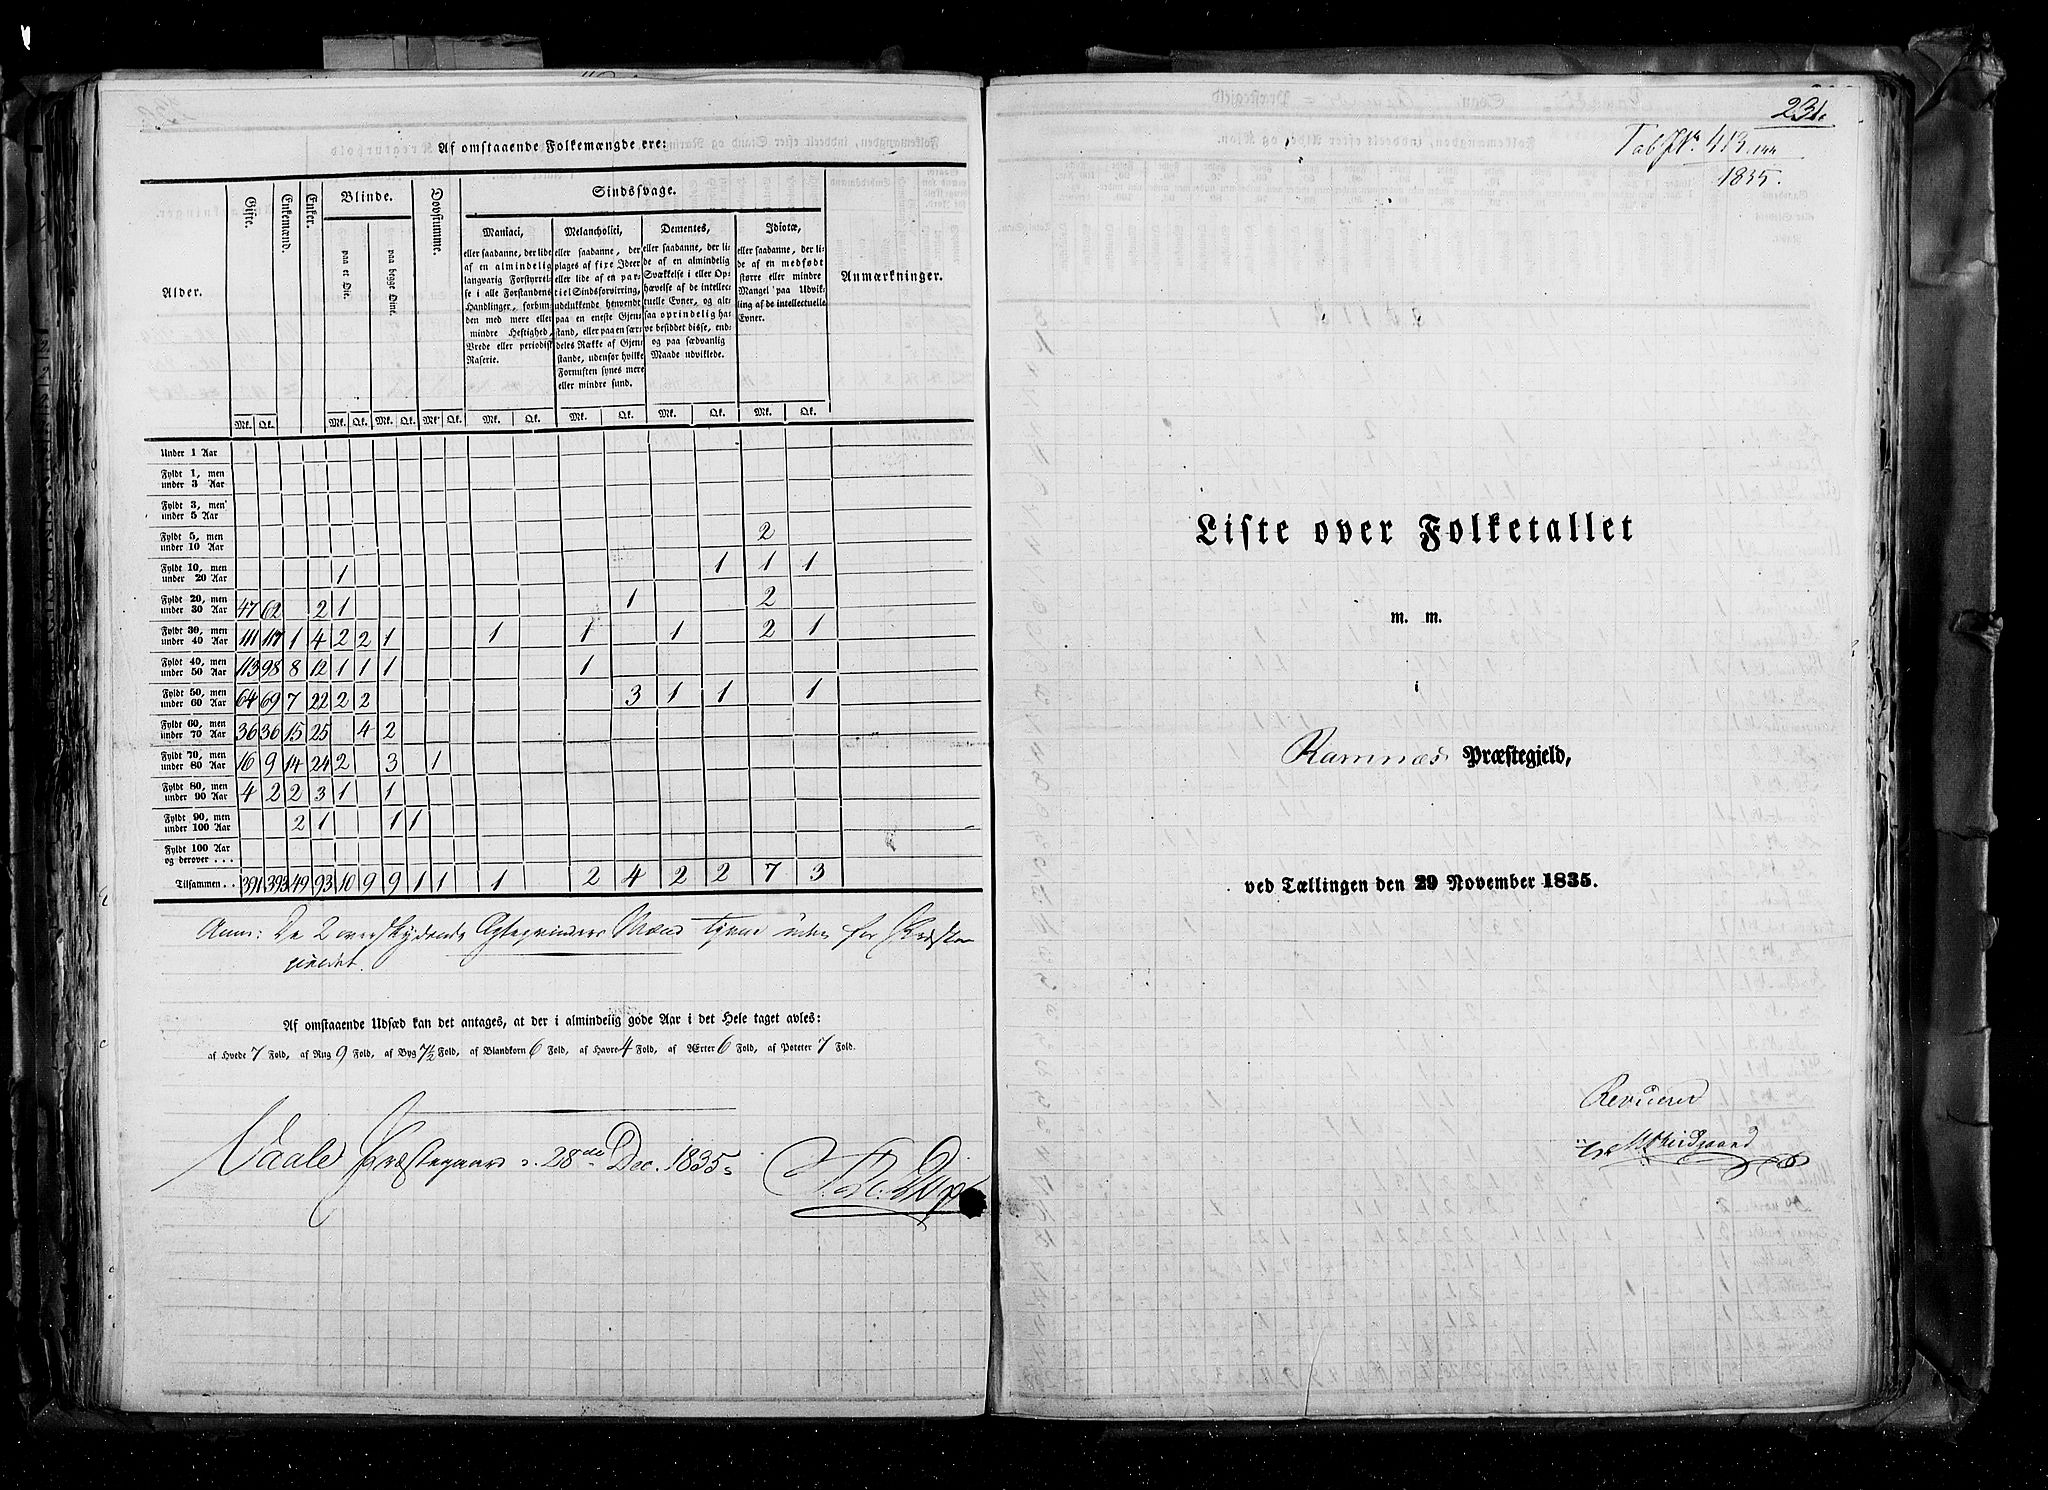 Af omstaaende Folkemængde ere:
Alder. Gifte. Enkemænd. Enker. Blinde. Døvstumme. Sindssvage. Anmærkninger.
paa et Øie. paa begge Øine.
Maniaci,
eller saadanne, der lide
af en almindelig
langvarig Forstyrrel-
se i alle Forstandens
Handlinger, forbun-
den med mere eller
mindre Heftighed,
Vrede eller periodisk
Raserie.
Melancholici,
eller saadanne, der
plages af fixe Ideer
eller lide af en par-
tiel Sindsforvirring,
udelukkende henvendt
paa en eneste Gjen-
stand, eller paa en sær-
deles Række af Gjen-
stande, udenfor hvilke
Fornuften synes mere
eller mindre sund.
Dementes,
eller saadanne, der li-
de af en almindelig
Svækkelse i eller Op-
hævelse af de intellec-
tuelle Evner, og al-
saa oprindelig ha-
ve besiddet disse, end-
og paa sædvanlig
Maade udviklede.
Idiotæ,
eller saadanne, der li-
de af en medfødt
større eller mindre
Mangel paa Udvik-
ling af de intellectuelle
Evner.
Mk. Qk. Mk. Qk. Mk. Qk. Mk. Qk. Mk. Qk. Mk. Qk. Mk. Qk. Mk. Qk.
Under 1 Aar
Fyldt 1, men
under 3 Aar
Fyldt 3, men
under 5 Aar
Fyldt 5, men
under 10 Aar 2
Fyldt 10, men
under 20 Aar 1 1 1 1
Fyldt 20, men
under 30 Aar 47 62 2 1 1 2
Fyldt 30, men
under 40 Aar 111 117 1 4 2 2 1 1 1 1 2 1
Fyldt 40, men
under 50 Aar 113 98 8 12 1 1 1 1
Fyldt 50, men
under 60 Aar 64 69 7 22 2 2 3 1 1 1
Fyldt 60, men
under 70 Aar 36 36 15 25 4 2
Fyldt 70, men
under 80 Aar 16 9 14 24 2 3 1
Fyldt 80, men
under 90 Aar 4 2 2 3 1 1
Fyldt 90, men
under 100 Aar 2 1 1 1
Fyldt 100 Aar
og derover . . .
Tilsammen . . 391 393 49 93 10 9 9 1 1 1 2 4 2 2 7 3
Anm: De 2 overskydende Mænd uden for
Af omstaaende Udsæd kan det antages, at der i almindelig gode Aar i det Hele taget avles:
af Hvede 7 Fold, af Rug 9 Fold, af Byg 7½ Fold, af Blandkorn 6 Fold, af Havre 4 Fold, af Ærter 6 Fold, af Poteter 7 Fold.
Vaale Præstegaard d. 28de Dec. 1835.
231.
413
1835.
Liste over Folketallet
m. m.
i
Ramnæs Præstegjeld,
ved Tællingen den 29 November 1835.
Revideret